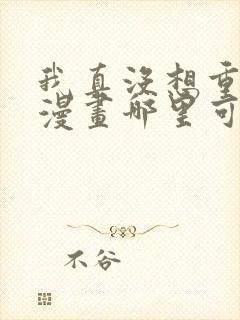 我真没想重
漫畫哪里可
不谷